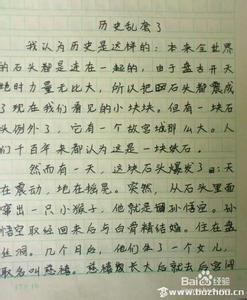 历史乱套了
我认为历史是这样的：本来全世界
的石头都是连在一起的，由于盘古开天
地时力量无比大，所以把石头都震成
了现在我们看见的小块块。但有一块石
头例外了，它有一个故宫城那么大。人
们千百年来都认为这是一块铁石。
然而有一天，这块石头爆发了：天
在震动，地在摇晃。突然，从石头里面
蹿出一只小猴子，他就是孙悟空。孙
悟空取经回来后与白骨精结婚。住在盘
丝洞。几个月后，他们生了一个女儿，
取名叫慈禧。慈禧长大后就去后宫闹
Baidu 百度
jingyan.baidu.com